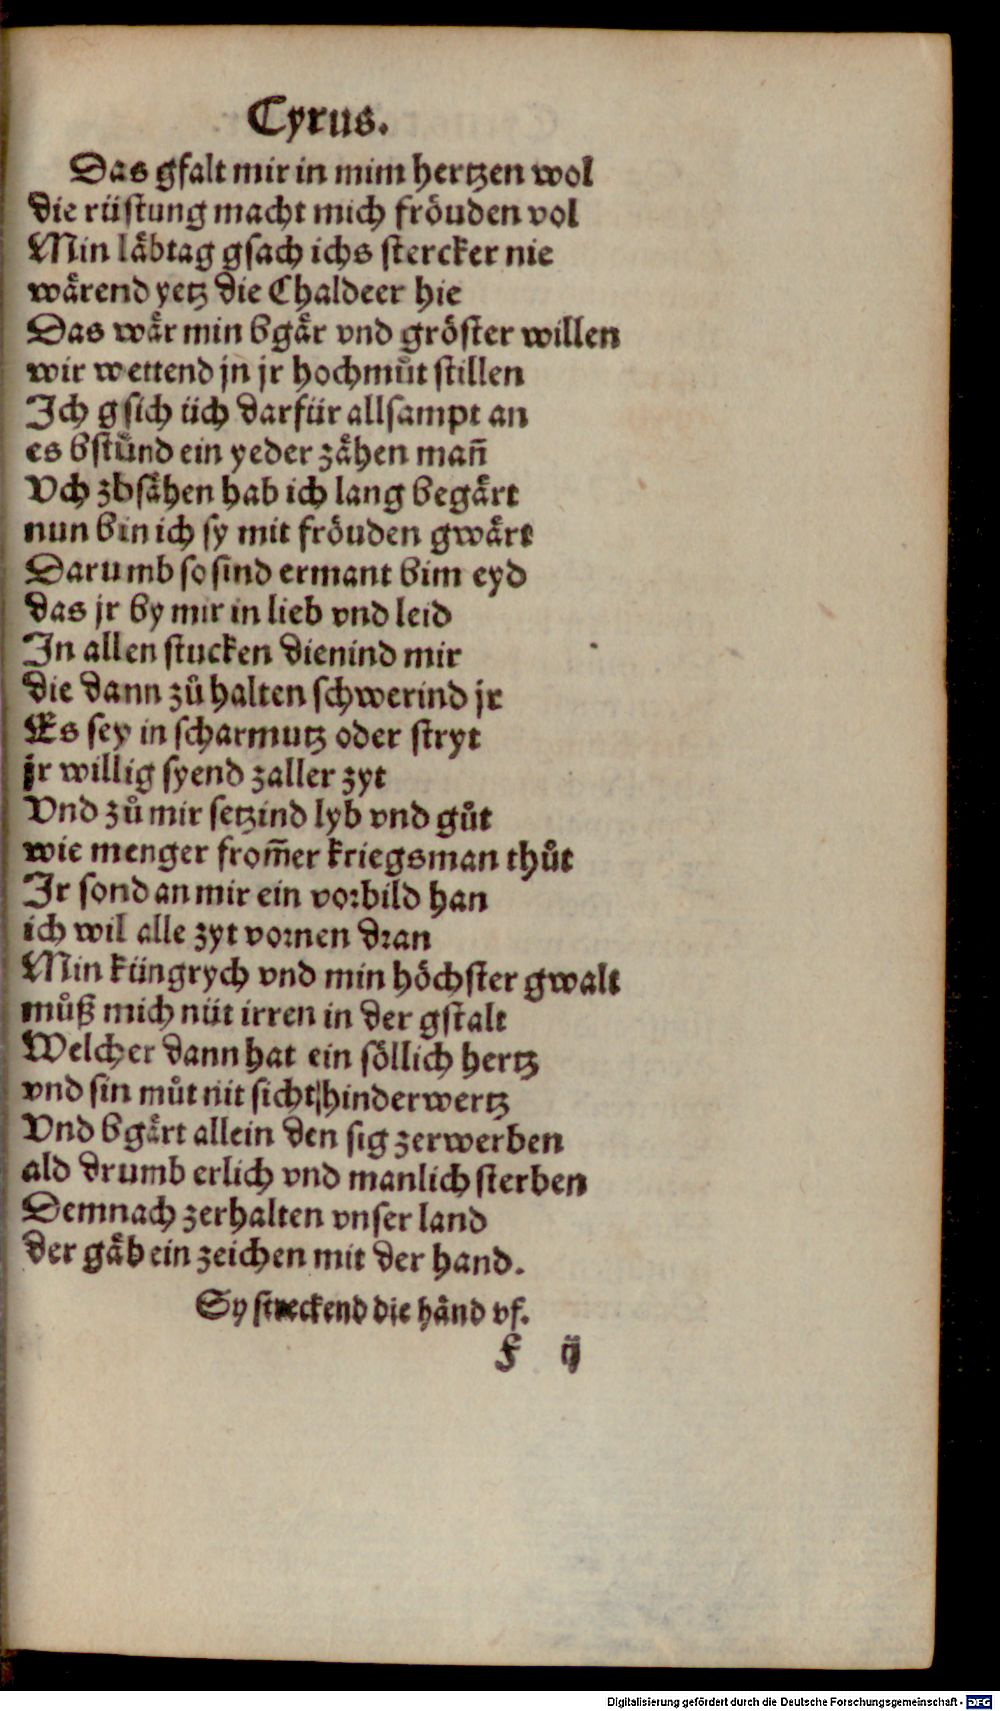 Cyrus.
Das gfalt mir in mim hertzen wol
die rüstung macht mich fröuden vol
Min läbtag gsach ichs stercker nie
wärend yetz die Chaldeer hie
Das wär min bgär vnd gröster willen
wir wettend jn jr hochmůt stillen
Ich gsich üch darfür allsampt an
es bstůnd ein yeder zähen man̄
Vch zbsähen hab ich lang begärt
nun bin ich sy mit fröuden gwärt
Darumb so sind ermant bim eyd
das jr by mir in lieb vnd leid
In allen stucken dienind mir
die dann zů halten schwerind jr
Es sey in scharmutz oder stryt
jr willig syend zaller zyt
Vnd zů mir setzind lyb vnd gůt
wie menger from̄er kriegsman thůt
Ir sond an mir ein vorbild han
ich wil alle zyt vornen dran
Min küngrych vnd min höchster gwalt
můß mich nüt irren in der gstalt
Welcher dann hat ein söllich hertz
vnd sin můt nit sicht hinderwertz
Vnd bgärt allein den sig zerwerben
ald drumb erlich vnd manlich sterben
Demnach zerhalten vnser land
der gäb ein zeichen mit der hand.
Sy streckend die händ vf.
F ij
Digitalisierung gefördert durch die Deutsche Forschungsgemeinschaft - DFG